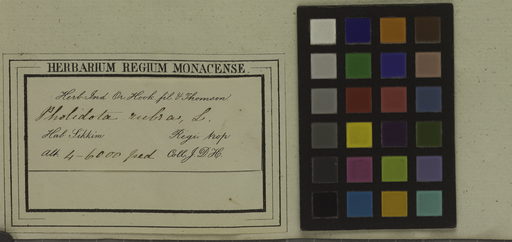 HERBARIUM REGIUM MONACENSE.
Herb. Ind. Or. Hook. fil. & Thomson
Pholidota rubra, L.
Hab. Sikkim Regio trop.
Alt. 4-6000 ped. Coll. J. D. H.